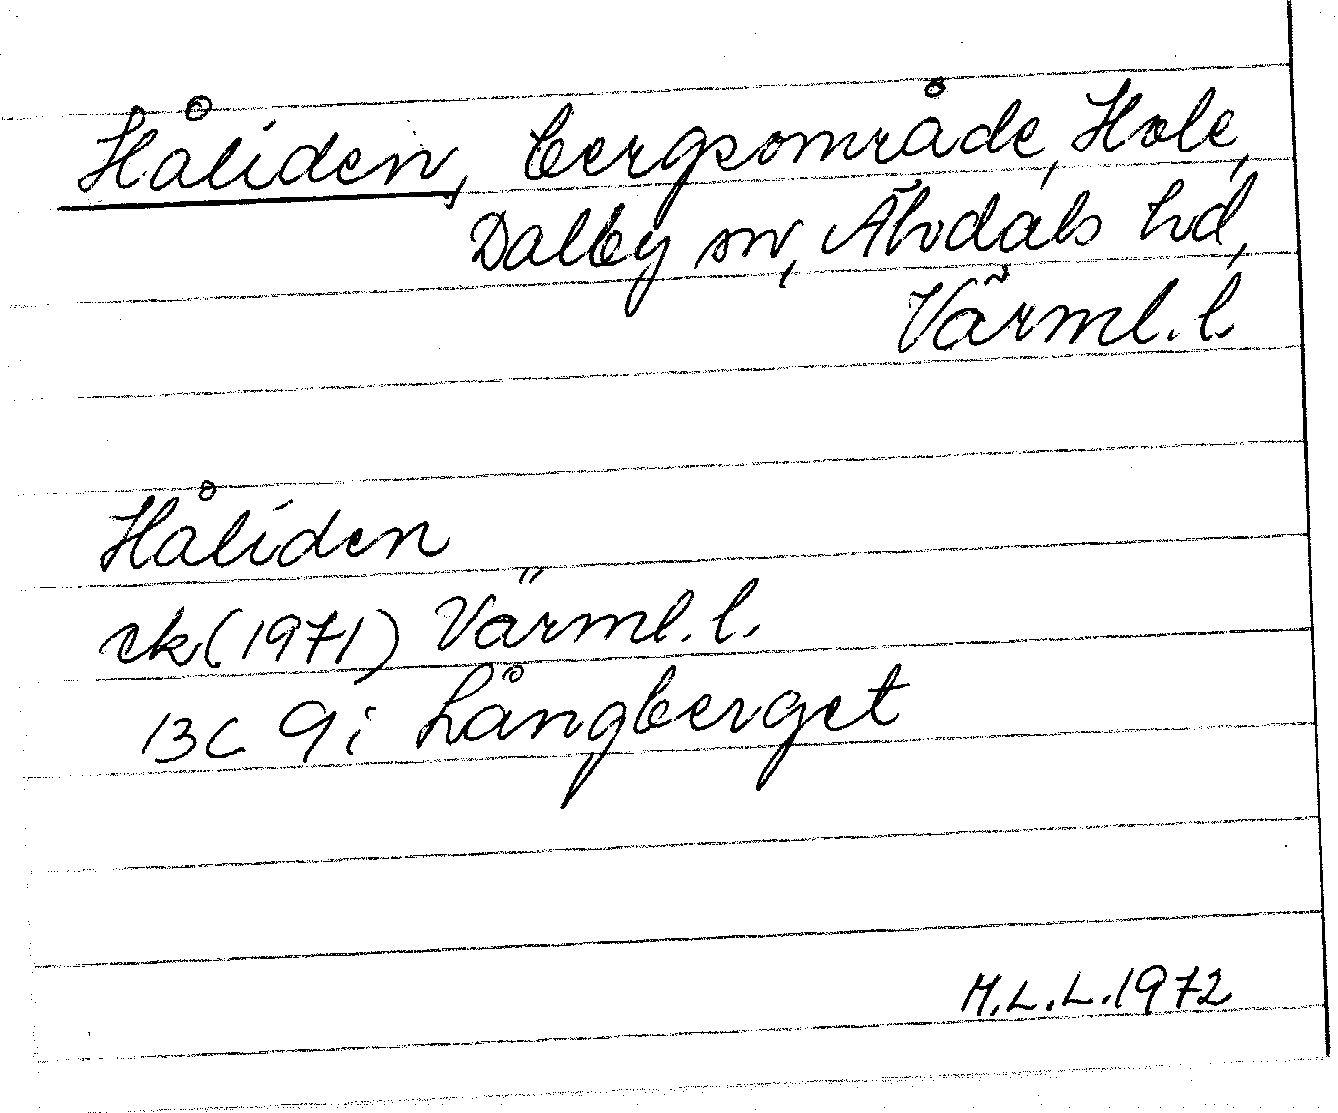 Håliden, bergsområde, Hole,
Dalby sn, Älvdals hd,
Värml. l.
Håliden
rk (1971) Värml. l.
13C 9i Långberget
M.L.L. 1972